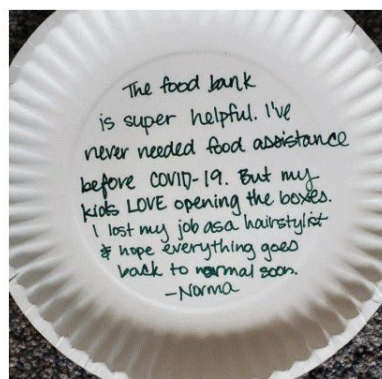 The food bank
is super helpful. I've
never needed food assistance
before COVID-19. But my
kids LOVE opening the boxes.
I lost my job as a hairstylist
& hope everything goes
back to normal soon.
-Norma